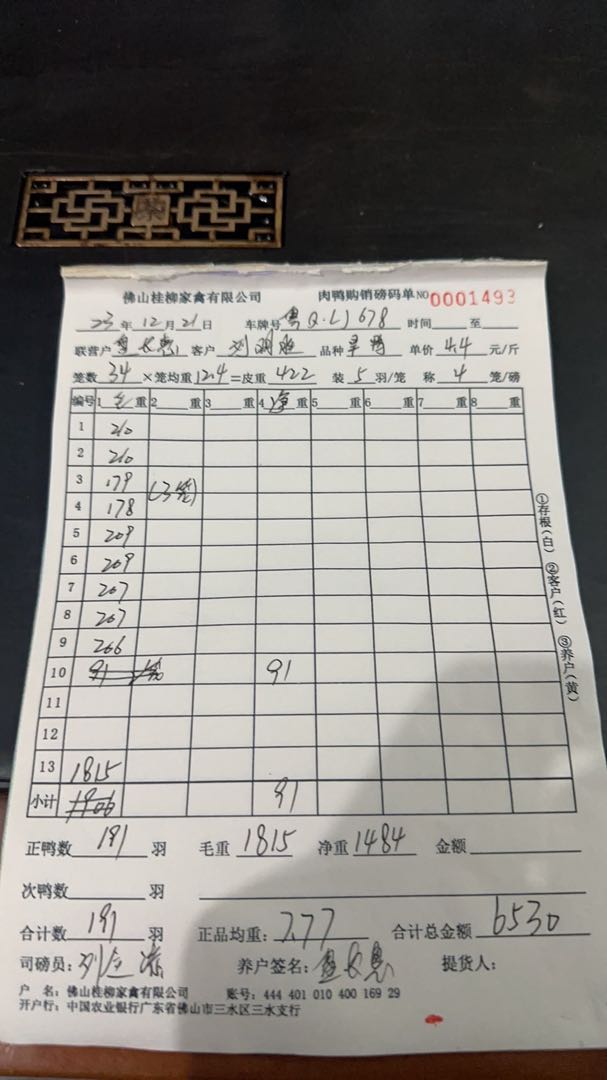 佛山桂柳家禽有限公司 肉鸭购销磅码单 NO 0001493
23年12月21日 车牌号 粤Q·LJ678 时间 至
联营户 客户 品种 单价 4.4 元/斤
笼数 34 ×笼均重 12.4 =皮重 422 装 5 羽/笼 称 4 笼/磅
编号 1 毛 重 2 重 3 重 4 净 重 5 重 6 重 7 重 8 重
1 210
2 210
3 179 (3笼)
4 178
5 209
6 209
7 207
8 207
9 206
10 91 91
11
12
13 1815
小计 1906 91
正鸭数 191 羽 毛重 1815 净重 1484 金额
次鸭数 羽
合计数 191 羽 正品均重: 7.77 合计总金额 6530
司磅员: 养户签名: 提货人:
户 名: 佛山桂柳家禽有限公司 账号: 444 401 010 400 169 29
开户行: 中国农业银行广东省佛山市三水区三水支行
①存根(白) ②客户(红) ③养户(黄)